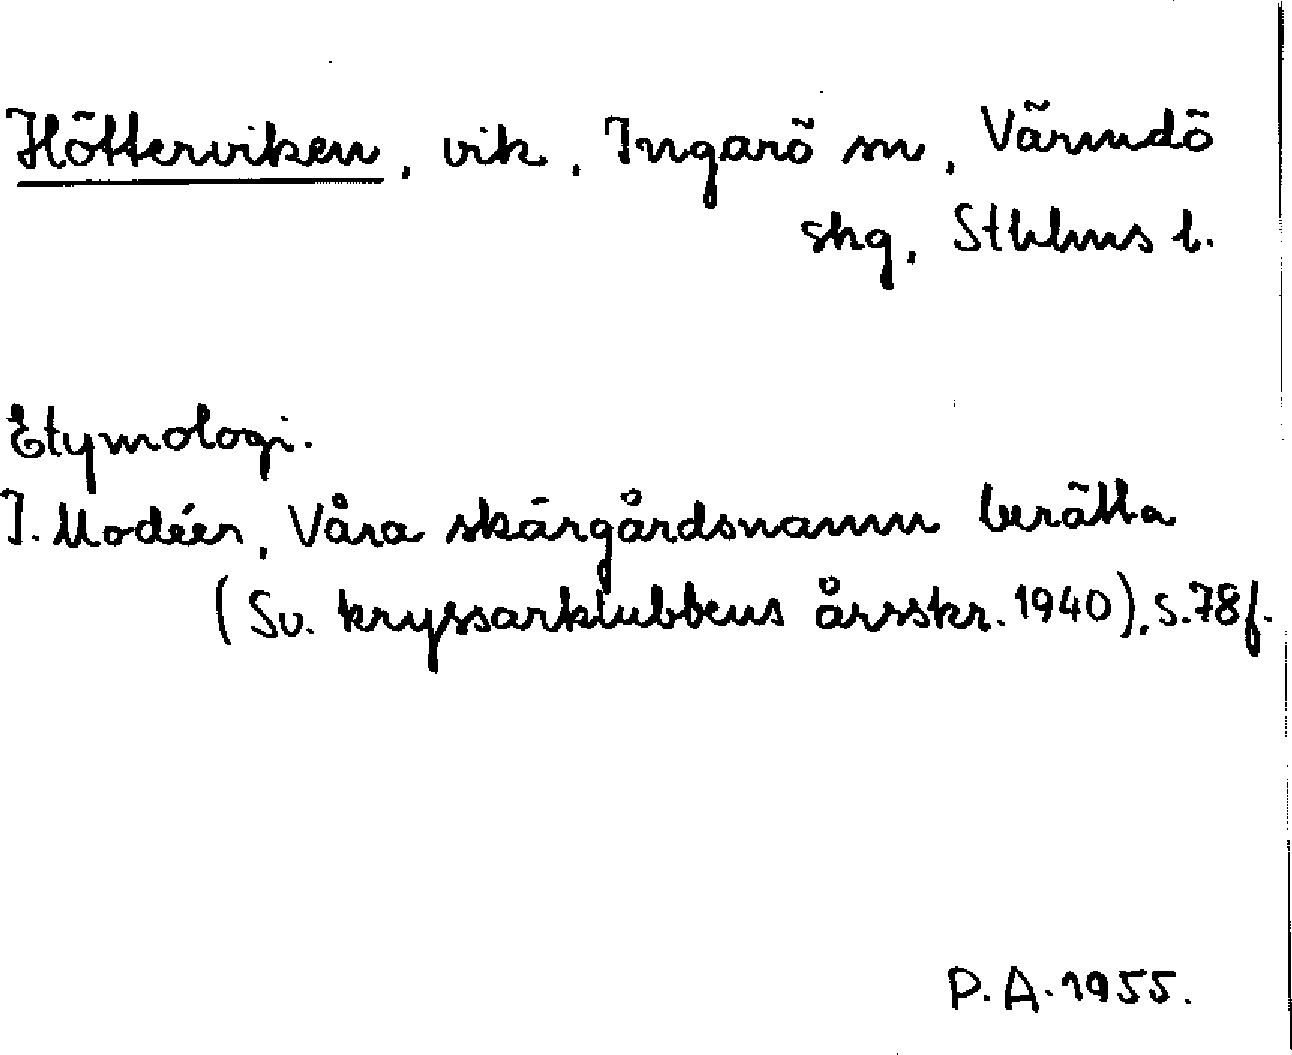 Hötterviken, vik, Ingarö sn, Värmdö
skg, Sthlms l.
Etymologi.
I. Modéer, Våra skärgårdsnamn berätta
(Sv. kryssarklubbens årsskr. 1940), s. 78 f.
P. A. 1955.